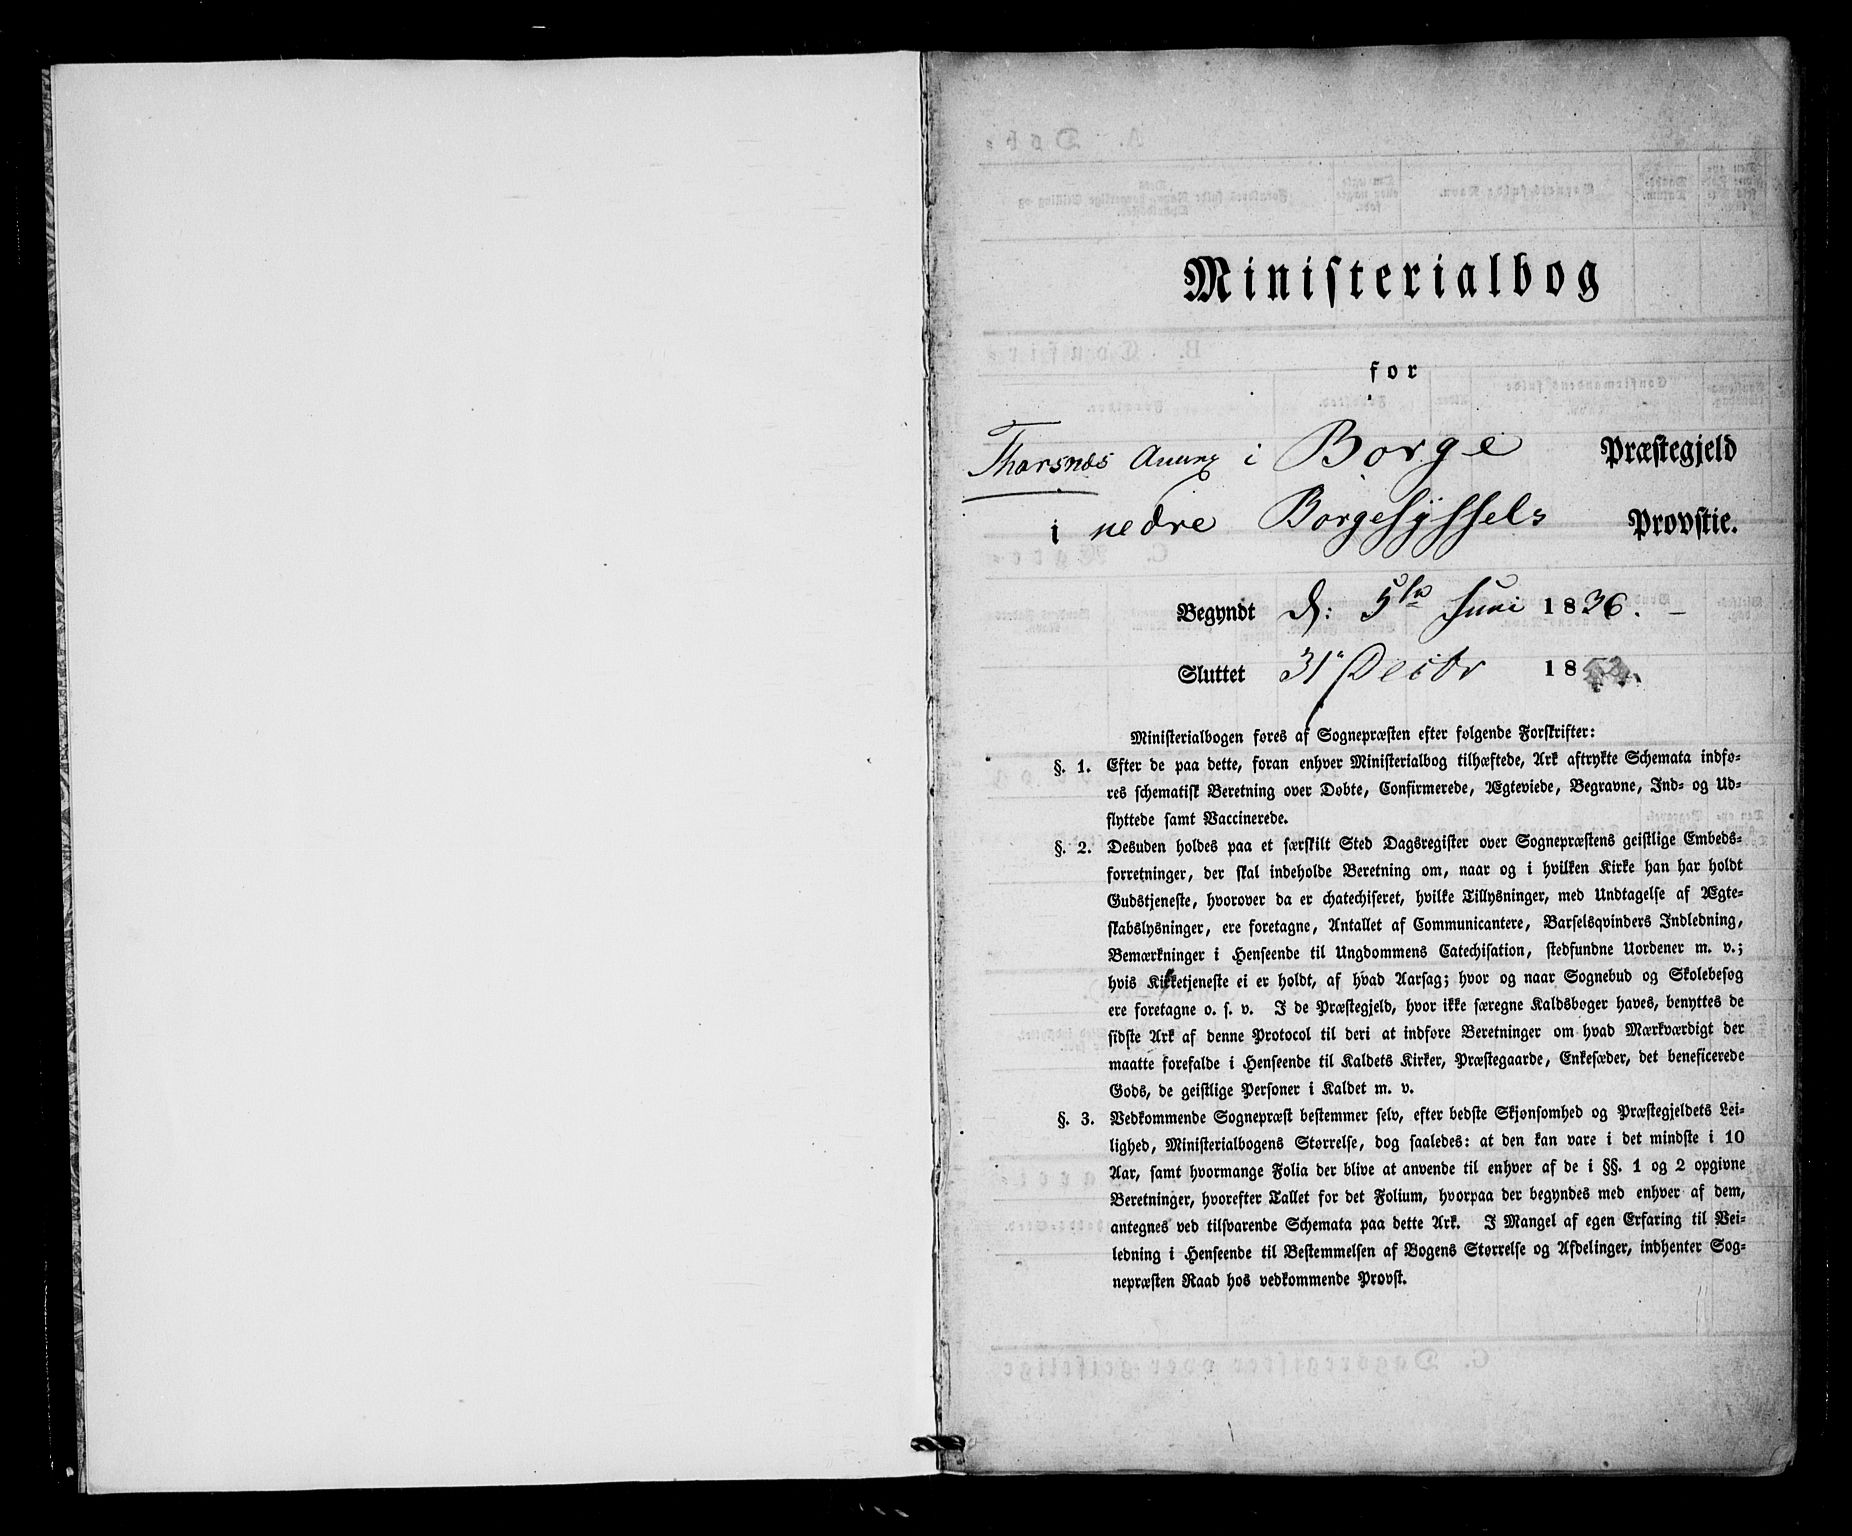 Ministerialbog
for
Thorsnæs Annex i Borge Præstegjeld
i nedre Borgesyssels Provstie.
Begyndt d: 5te Juni 1836. –
Sluttet 31' Decbr 18
Ministerialbogen føres af Sognepræsten efter følgende Forskrifter:
§. 1. Efter de paa dette, foran enhver Ministerialbog tilhæftede, Ark aftrykte Schemata indfø-
res schematisk Beretning over Døbte, Confirmerede, Ægteviede, Begravne, Ind- og Ud-
flyttede samt Vaccinerede.
§. 2. Desuden holdes paa et særskilt Sted Dagsregister over Sognepræstens geistlige Embeds-
forretninger, der skal indeholde Beretning om, naar og i hvilken Kirke han har holdt
Gudstjeneste, hvorover da er chatechiseret, hvilke Tillysninger, med Undtagelse af Ægte-
skabslysninger, ere foretagne, Antallet af Communicantere, Barselqvinders Indledning,
Bemærkninger i Henseende til Ungdommens Catechisation, stedfundne Uordener m. v.;
hvis Kirketjeneste ei er holdt, af hvad Aarsag; hvor og naar Sognebud og Skolebesøg
ere foretagne o. s. v. I de Præstegjeld, hvor ikke særegne Kaldsbøger haves, benyttes de
sidste Ark af denne Protocol til deri at indføre Beretninger om hvad Mærkværdigt der
maatte forefalde i Henseende til Kaldets Kirker, Præstegaarde, Enkesæder, det beneficerede
Gods, de geistlige Personer i Kaldet m. v.
§. 3. Vedkommende Sognepræst bestemmer selv, efter bedste Skjønsomhed og Præstegjeldets Lei-
lighed, Ministerialbogens Størrelse, dog saaledes: at den kan vare i det mindste i 10
Aar, samt hvormange Folia der blive at anvende til enhver af de i §§. 1 og 2 opgivne
Beretninger, hvorefter Tallet for det Folium, hvorpaa der begyndes med enhver af dem,
antegnes ved tilsvarende Schemata paa dette Ark. I Mangel af egen Erfaring til Vei-
ledning i Henseende til Bestemmelsen af Bogens Størrelse og Afdelinger, indhenter Sog-
nepræsten Raad hos vedkommende Provst.